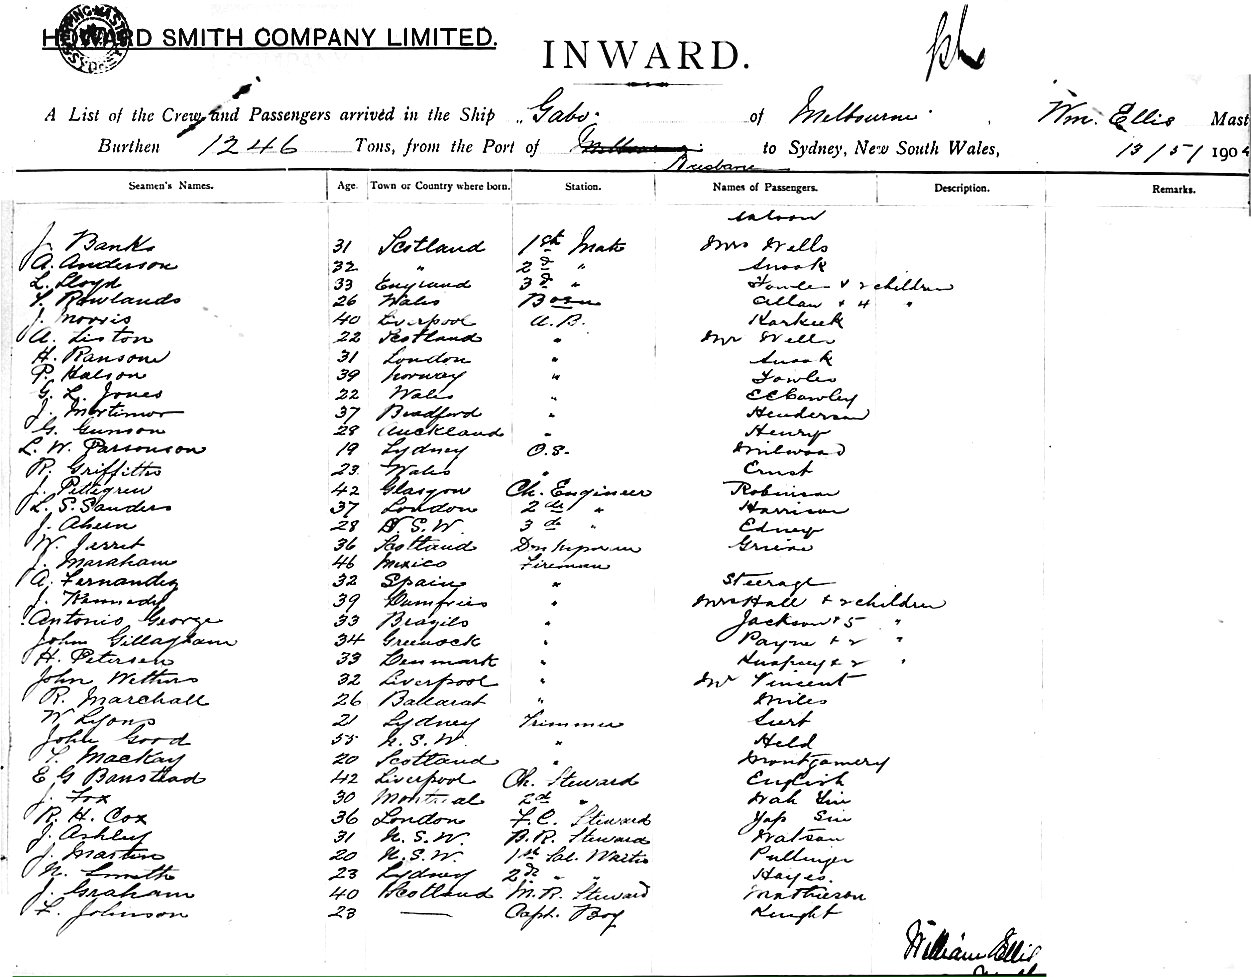 HOWARD SMITH COMPANY LIMITED.
INWARD.
A List of the Crew and Passengers arrived in the Ship "Gabo" of Melbourne, Wm. Ellis Mast
Burthen 1246 Tons, from the Port of Melbourne Brisbane to Sydney, New South Wales, 13/5/ 1904
Seamen's Names. Age. Town or Country where born. Station. Names of Passengers. Description. Remarks.
Saloon
J. Banks 31 Scotland 1st Mate Mrs Wells
A. Anderson 32 " 2d " Snook
L. Lloyd 33 England 3d " Fowler & 2 children
T. Rowlands 26 Wales Bosn Allan & 4 "
J. Morris 40 Liverpool A.B.
A. Liston 22 Scotland " Mr Wells
H. Ransom 31 London " Snook
P. Halson 39 Norway " Fowler
G. L. Jones 22 Wales " CC Cowley
J. Mortimor 37 Bradford Henderson
G. Gunson 28 Auckland " Henry
L. W. Parsonson 19 Sydney O.S. Milwood
R. Griffiths 23 Wales " Ernst
J. Pettegrew 42 Glasgow Ch. Engineer Robinson
L. S. Sanders 37 London 2de " Harrison
J. Ahern 28 N.S.W. 3de " Edney
W. Jerret 36 Scotland Donkeyman Grieve
J. Maraham 46 Mexico Fireman
A. Fernandez 32 Spain " Steerage
J. Kennedy 39 Dumfries " Mrs Hall & 2 children
Antonio George 33 Brazils " Jackson & 5 "
John Gillagham 34 Greenock " Payne & 2 "
H. Petersen 33 Denmark " & 2 "
John Withers 32 Liverpool " Mr Vincent
R. Marchall 26 Ballarat " Miles
W. Lyons 21 Sydney Trimmer
John Good 55 N.S.W. " Held
T. Mackay 20 Scotland " Montgomery
E G Banstead 42 Liverpool Ch. Steward English
J. Fox 30 Montreal 2d " Wah
R. H. Cox 36 London F.C. Steward Yap
J. Ashley 31 N.S.W. B.R. Steward Watson
J. Martin 20 N.S.W. 1st Sal. Waiter Pullinger
N. Smith 23 Sydney 2d " " Hayes.
J. Graham 40 Scotland M.R. Steward Mathieson
F. Johnson 23 — Capt. Boy Knight
William Ellis